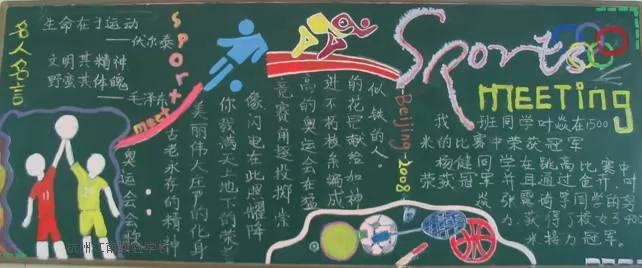 名人名言
生命在于运动
——伏尔泰
文明其精神
野蛮其体魄
——毛泽东
Sports
meet
奥运会会歌
古老永存的精神
美丽伟大庄严的化身
像闪电在此照耀阵
竞赛角逐投掷崇
高的奥运会在猛
进不朽枝条编成
的花冠献给如神
似铁的人
Beijing 2008
Sports
MEETing
我班同学叶焱在1500
米的比赛中荣获冠军
杨健同学在跳高比赛中
荣获冠军并且通过金开,叶
等同学的努
力获得了校女
米接力冠军。